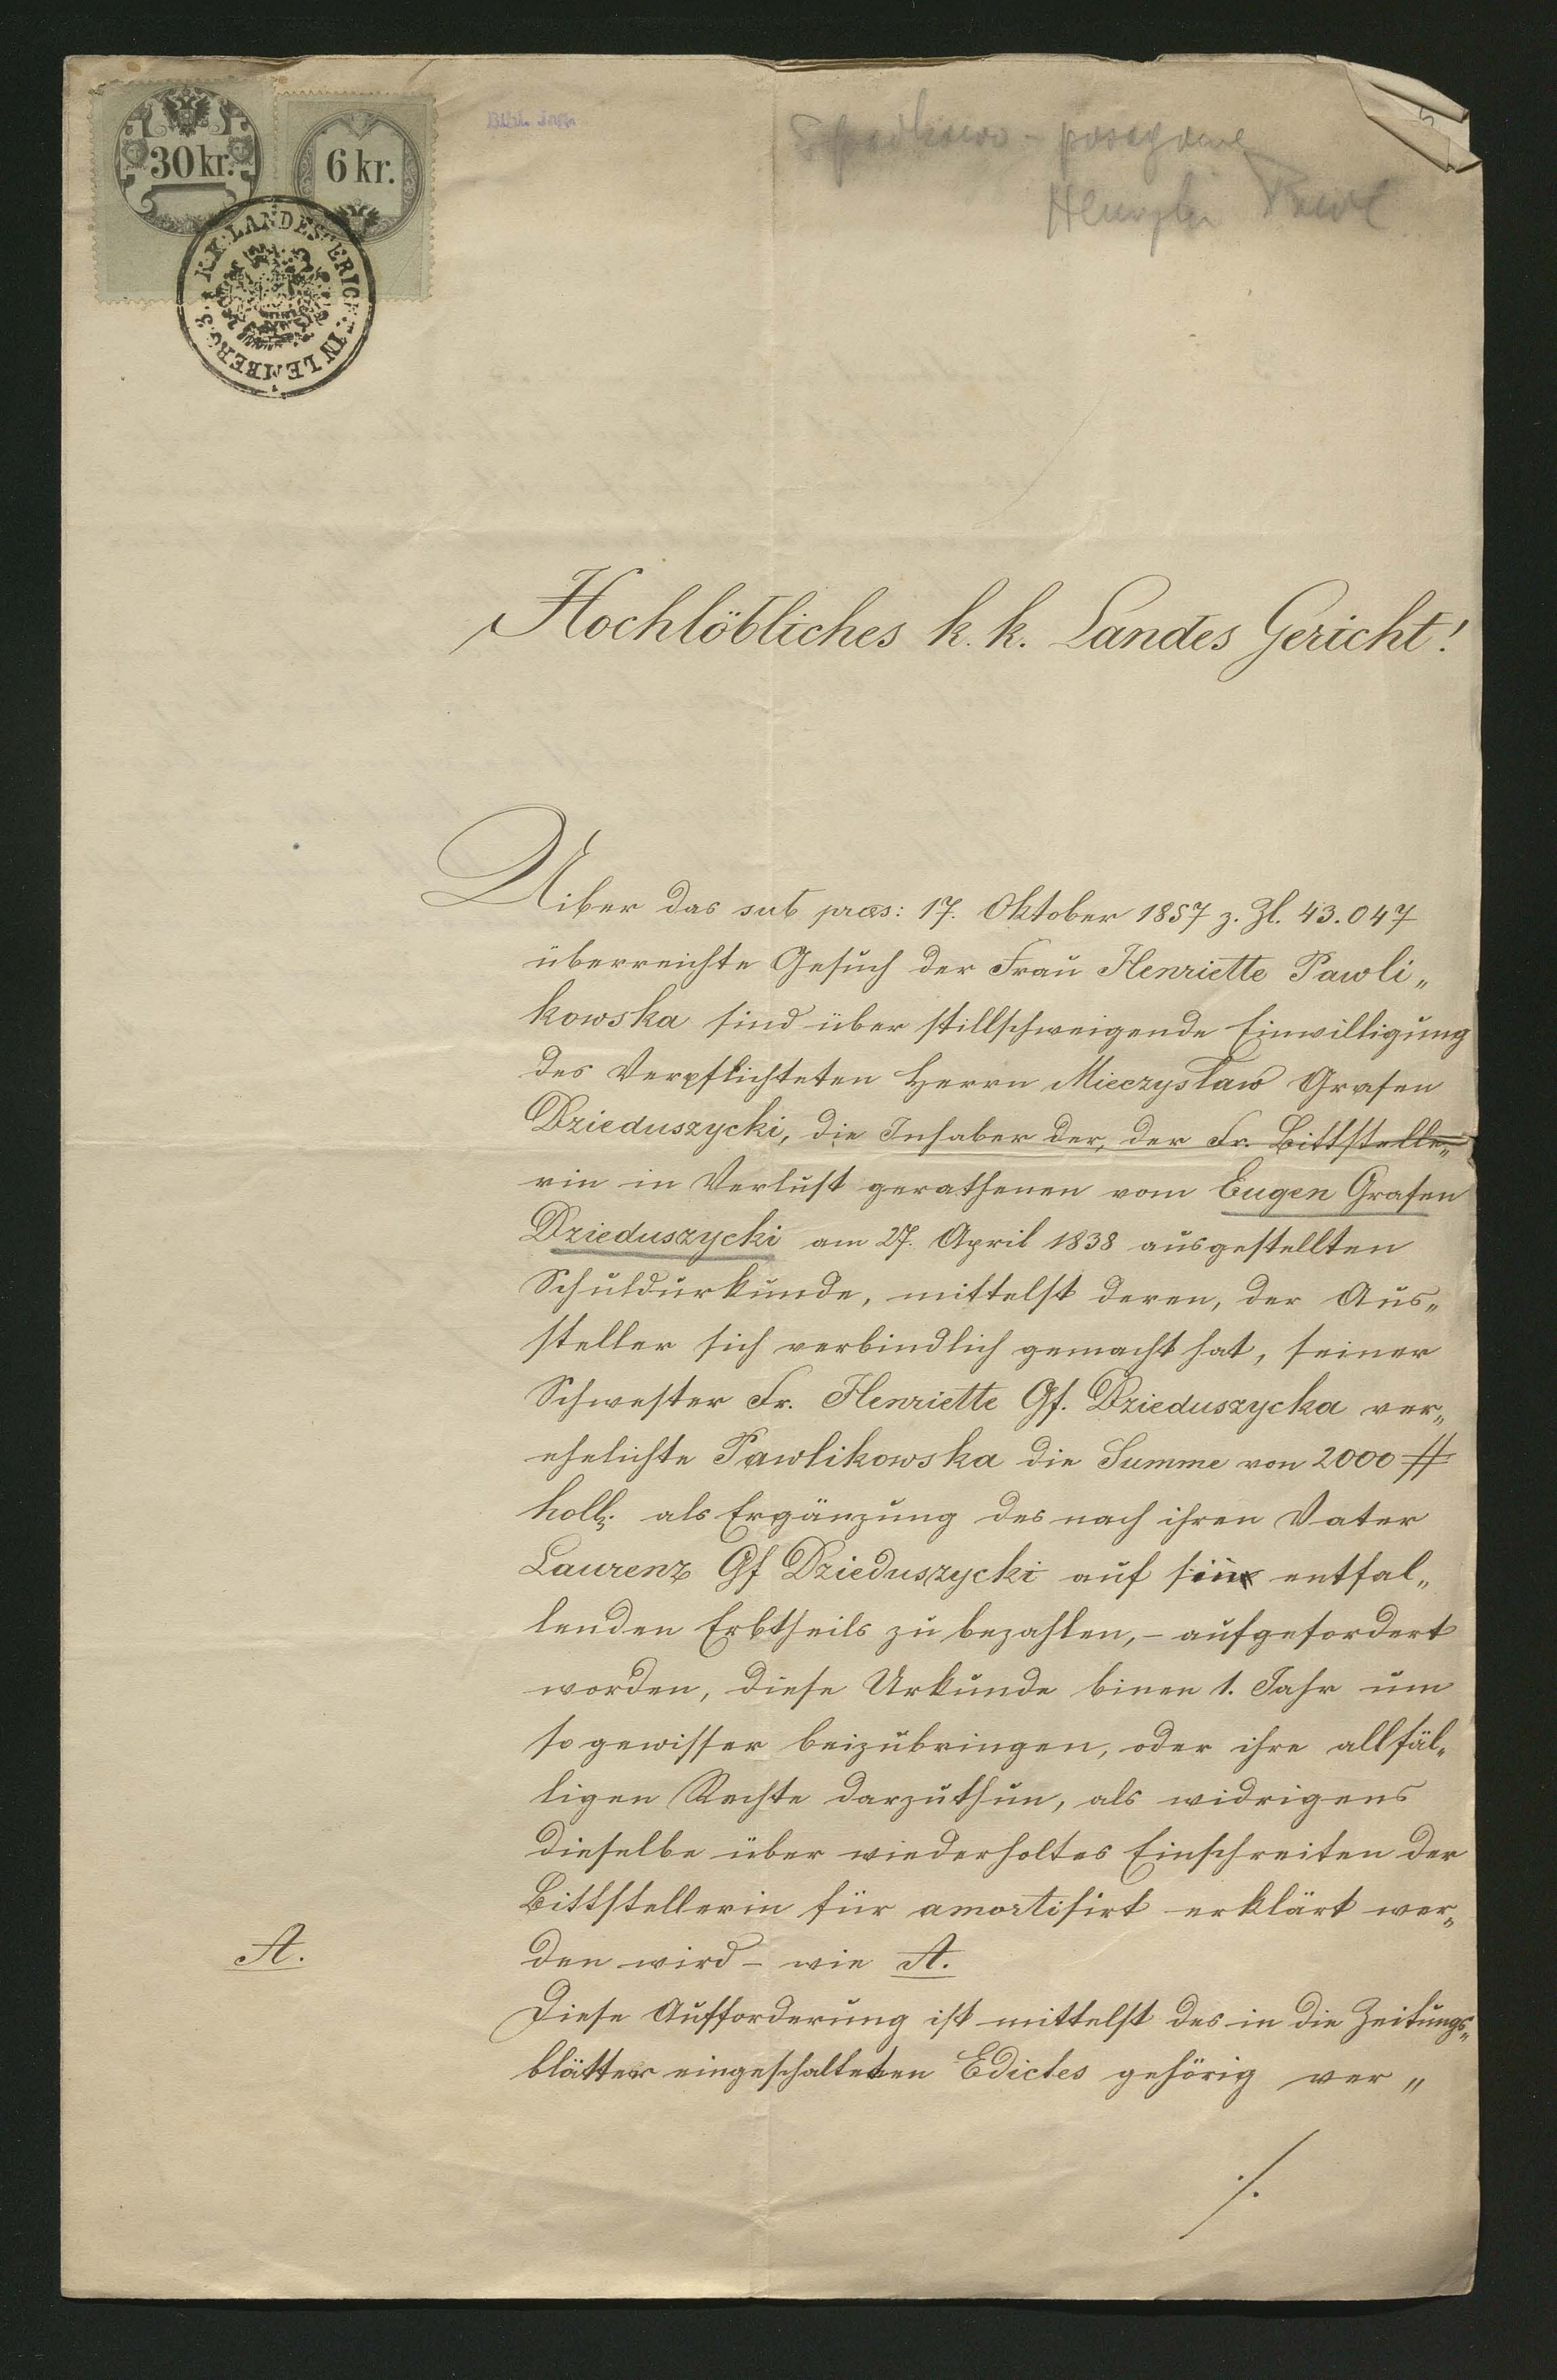 30 kr.
6 kr.
K.K. LANDESGERICHT IN LEMBERG
Bibl. Jag.
Spadkowo - posagowe
Pawl
Hochlöbliches k. k. Landes Gericht!
Uiber das sub præs: 17. Oktober 1857 z. Zl. 43.047
überreichte Gesuch der Frau Henriette Pawli„
kowska sind über stillschweigende Einwilligung
des Verpflichteten Herrn Mieczysław Grafen
Dzieduszycki, die Inhaber der, der Fr. Bittstelle„
rin in Verlust gerathenen vom Eugen Grafen
Dzieduszycki am 27. April 1838 ausgestellten
Schuldurkunde, mittelst deren, der Aus„
steller sich verbindlich gemacht hat, seiner
Schwester Fr. Henriette Gf. Dzieduszycka ver„
ehelichte Pawlikowska die Summe von 2000 #
holl. als Ergänzung des nach ihren Vater
Laurenz Gf Dzieduszycki auf sie entfal„
lenden Erbtheils zu bezahlen, – aufgefordert
worden, diese Urkunde binen 1. Jahr um
so gewisser beizubringen, oder ihre allfäl„
ligen Rechte darzuthun, als widrigens
dieselbe über wiederholtes Einschreiten der
Bittstellerin für amortisirt erklärt wer„
A.
den wird – wie A.
Diese Aufforderung ist mittelst des in die Zeitungs„
blätter eingeschalteten Edictes gehörig ver„
./.